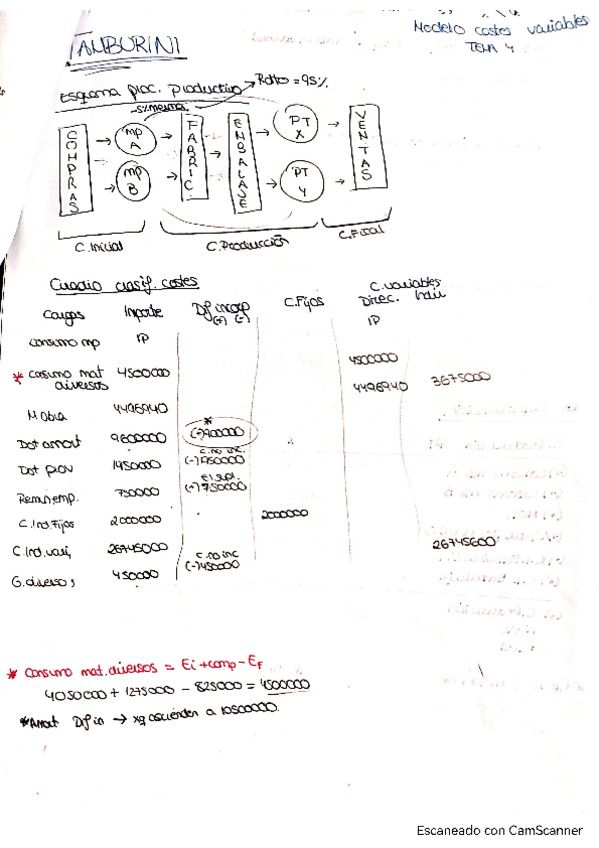 TAMBURINI
Modelo costes variables
TEMA 4
Esquema proc. productivo
Rdto = 95%
5% merma
COMPRAS
MP A
MP B
FABRIC.
ENBALASE
PT X
PT Y
VENTAS
C.Inicial
C.Producción
C.Final
Cuadro clasif. costes
Cargas Importe Dif incorp (+) (-) C.Fijos C.variables Direc. Indi
consumo mp IP IP
* consumo mat diversos 4500000 4500000
M obra 4496940 4496940 3675000
Dot amort 9600000 (-) 900000 *
Dot prov 1450000 (-) 1450000 C.no inc.
Remun emp. 750000 (+) 750000 El. supl.
C.Ind Fijos 2000000 2000000
C.Ind. vari, 26745000 26745600
G. diversos 450000 (-) 450000 C.no inc
* Consumo mat. diversos = Ei + comp - EF
4050000 + 1275000 - 825000 = 4500000
* Amort Dif in → xq ascienden a 10500000.
Escaneado con CamScanner